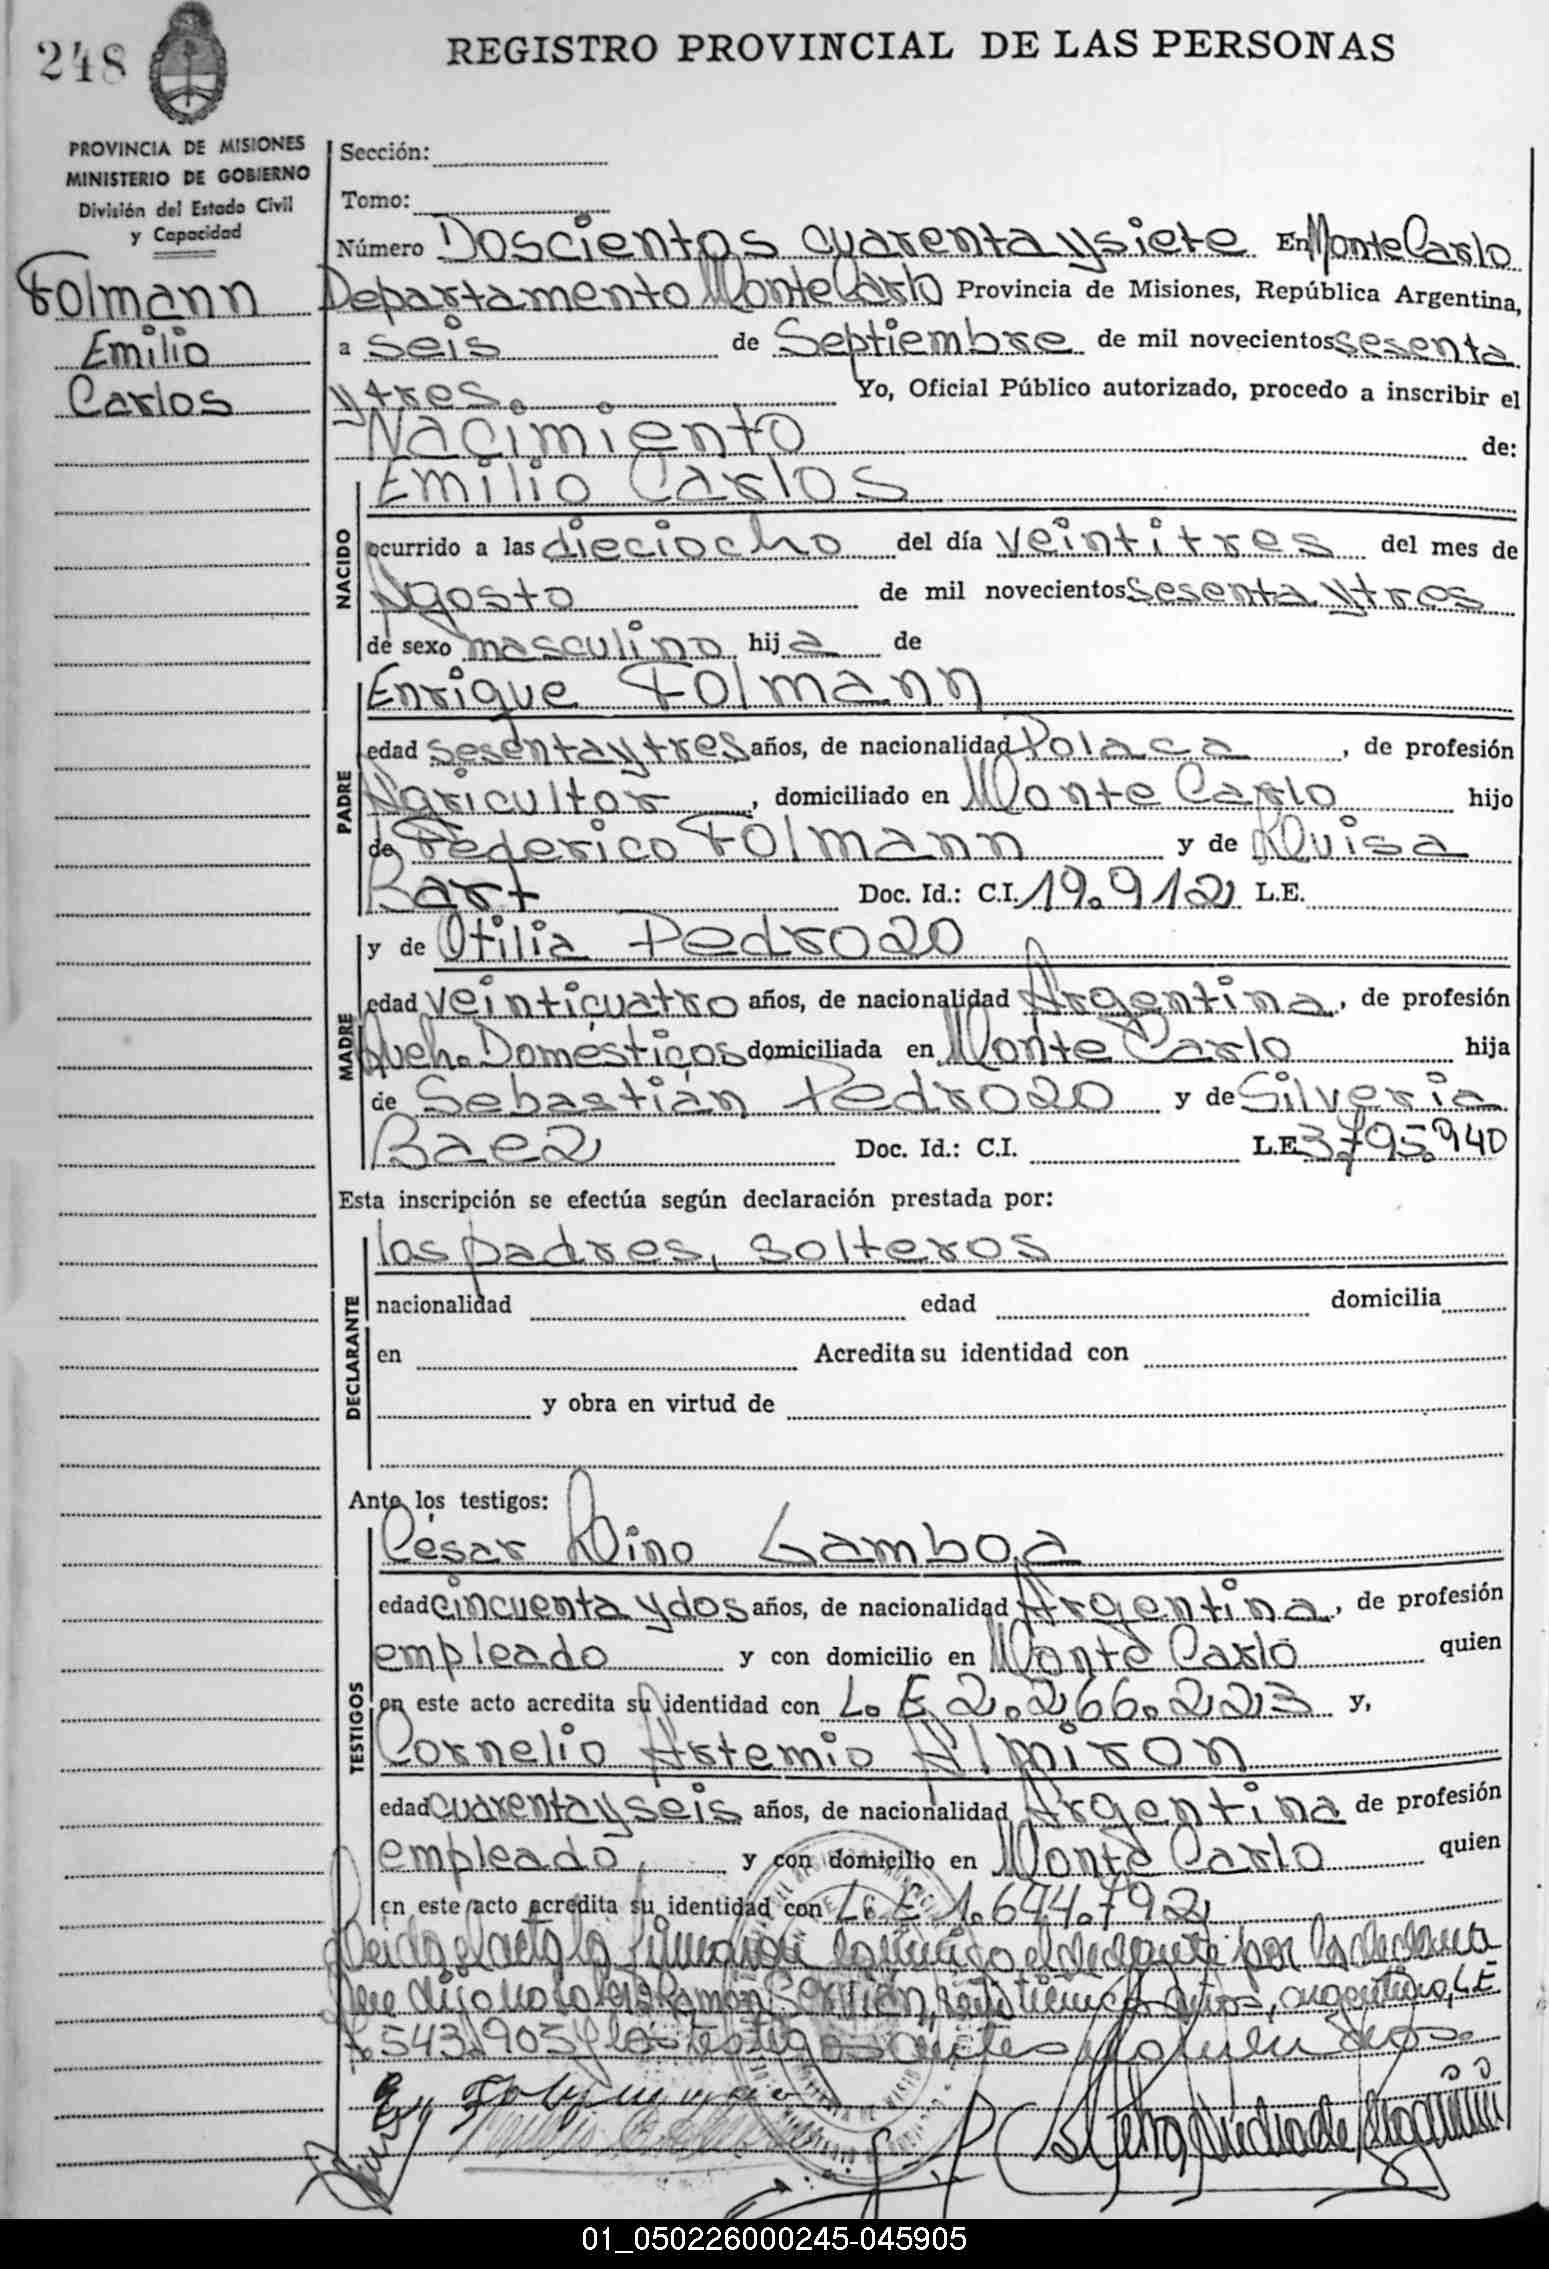 248
REGISTRO PROVINCIAL DE LAS PERSONAS
PROVINCIA DE MISIONES
MINISTERIO DE GOBIERNO
División del Estado Civil
y Capacidad
Folmann
Emilio
Carlos
Sección:
Tomo:
Número Doscientos cuarenta y siete En Monte Carlo
Departamento Monte Carlo Provincia de Misiones, República Argentina,
a seis de Septiembre de mil novecientos sesenta
y tres. Yo, Oficial Público autorizado, procedo a inscribir el
Nacimiento de:
NACIDO
Emilio Carlos
ocurrido a las dieciocho del día veintitres del mes de
Agosto de mil novecientos sesenta y tres
de sexo masculino hij a de
PADRE
Enrique Folmann
edad sesenta y tres años, de nacionalidad Polaca, de profesión
Agricultor, domiciliado en Monte Carlo hijo
de Federico Folmann y de Luisa
Bart Doc. Id.: C.I. 19.912 L.E.
MADRE
y de Otilia Pedrozo
edad veinticuatro años, de nacionalidad Argentina, de profesión
Queh. Domésticos domiciliada en Monte Carlo hija
de Sebastián Pedrozo y de Silveria
Baez Doc. Id.: C.I. L.E. 3.795.940
Esta inscripción se efectúa según declaración prestada por:
DECLARANTE
los padres, solteros
nacionalidad edad domicilia
en Acredita su identidad con
y obra en virtud de
Ante los testigos:
TESTIGOS
César Lino Gamboa
edad cincuenta y dos años, de nacionalidad Argentina, de profesión
empleado y con domicilio en Monte Carlo quien
en este acto acredita su identidad con L. E. 2.266.223 y,
Cornelio Artemio Almiron
edad cuarenta y seis años, de nacionalidad Argentina de profesión
empleado, y con domicilio en Monte Carlo quien
en este acto acredita su identidad con L. E 1.644.792
Leida el acta la firmaron conmigo el declarante por la declara
que dijo no saber Ramón años, argentino, L.E
543.905 y los testigos antes
01_050226000245-045905